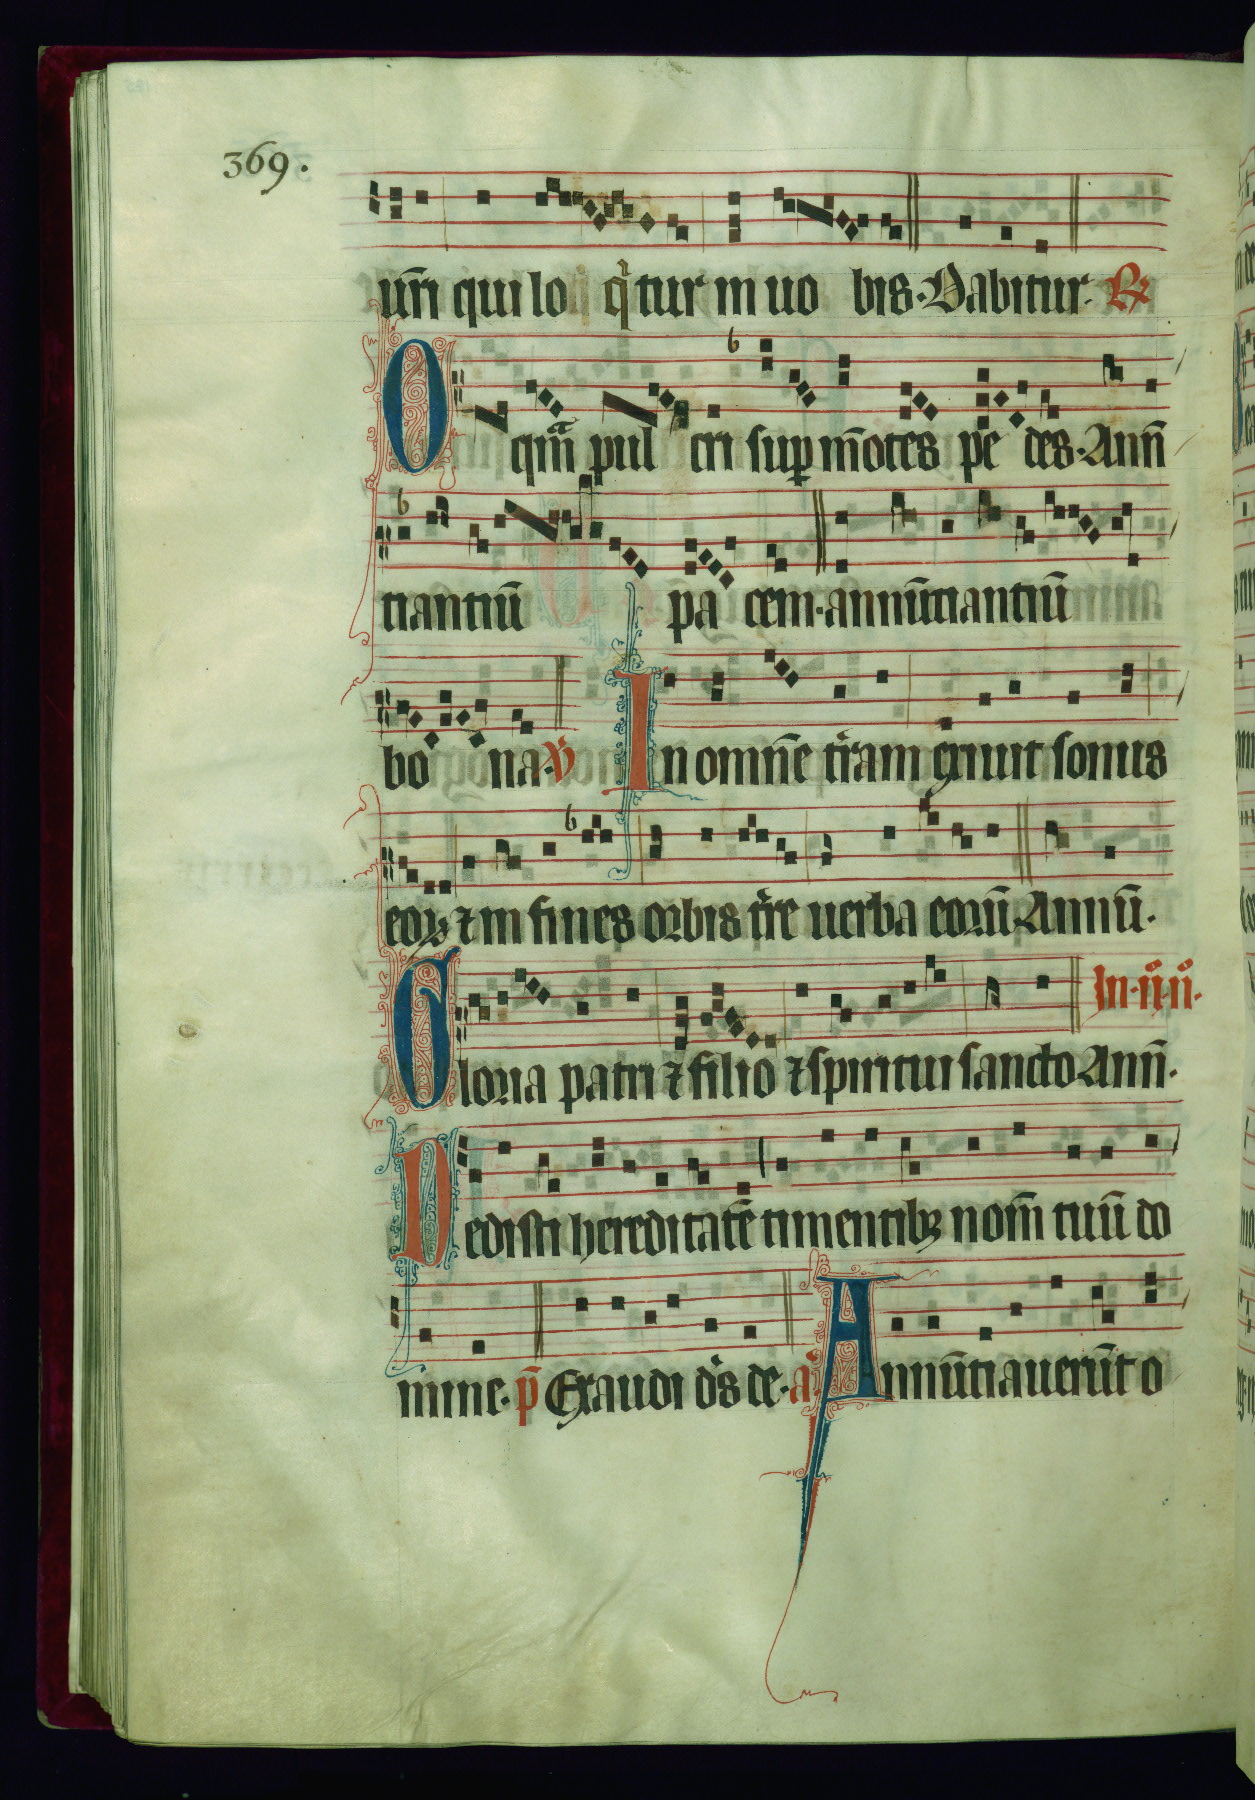 369.
ur̄i qui lo q̇tur in uo bis. Dabitur. R
O qm̄ pul cri sup mōtes pe des. Ann̄
tiantiū pa cem. annūtiantiū
bo na. V In omnē tr̄am exiuit sonus
eoꝝ ⁊ in fines orbis tr̄re uerba eorū Annū.
Gloria patri ⁊ filio ⁊ spiritui sancto Ann̄.
In. ii. n.
Dedisti hereditatē timentibꝫ nom̄ tuū do
mine. p̄ Exaudi ds̄ de. a. Annūtiauerūt o